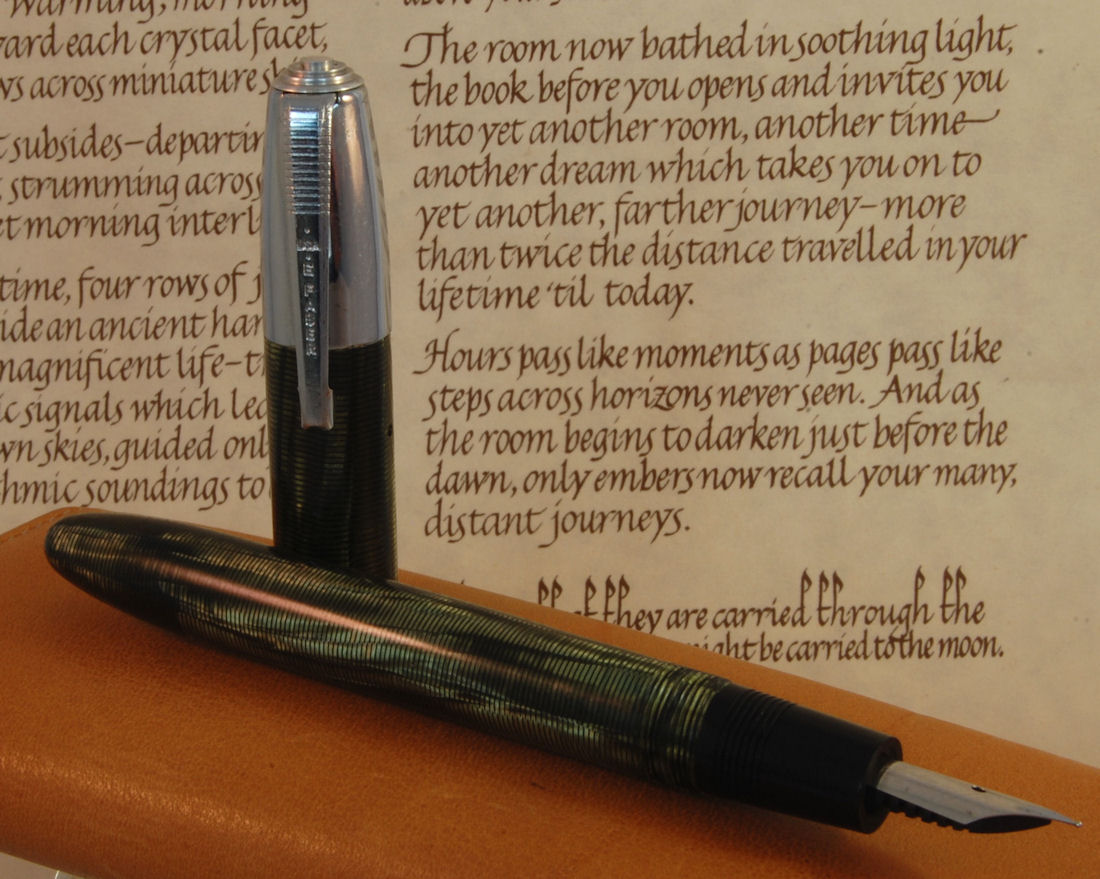 warming, morning
ward each crystal facet,
ws across miniature
subsides–departin
strumming across
et morning interl
time, four rows of
ide an ancient har
magnificent life–t
ic signals which lea
wn skies, guided onl
hmic soundings to
The room now bathed in soothing light,
the book before you opens and invites you
into yet another room, another time–
another dream which takes you on to
yet another, farther journey–more
than twice the distance travelled in your
lifetime 'til today.
Hours pass like moments as pages pass like
steps across horizons never seen. And as
the room begins to darken just before the
dawn, only embers now recall your many,
distant journeys.
they are carried through the
might be carried to the moon.